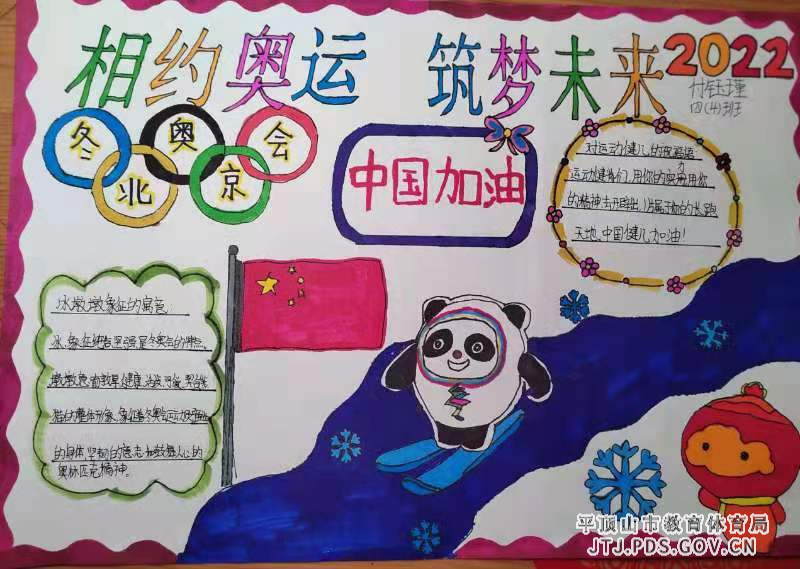 相约奥运 筑梦未来 2022
付钰瑾
四(4)班
冬 奥 会
北 京
中国加油
对运动健儿的祝福语
运动健将们,用你的实力用你
的精神去开辟出,属于你的长跑
天地。中国健儿加油!
冰墩墩象征的寓意
冰.象征纯洁坚强是冬奥会的特点.
墩墩意喻敦厚,健康,活泼,可爱,契合熊
猫的整体形象、象征着冬奥会运动员强壮
的身体.坚韧的意志和鼓舞人心的
奥林匹克精神。
平顶山市教育体育局
JTJ.PDS.GOV.CN